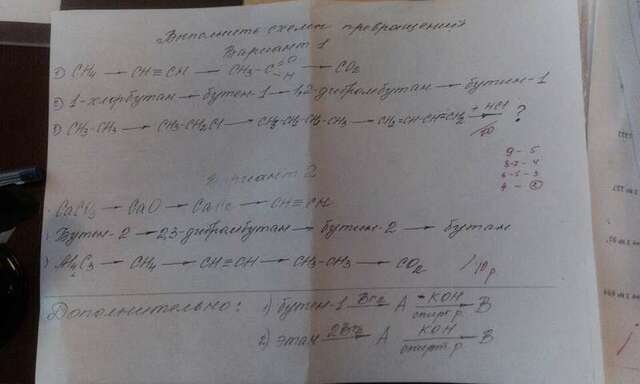 Выполнить схемы превращений
Вариант 1
1) CH4 → CH≡CH → CH3-C=O-H → CO2
2) 1-хлорбутан → бутен-1 → 1,2-дибромбутан → бутин-1
3) CH3-CH3 → CH3-CH2Cl → CH3-CH2-CH2-CH3 → CH2=CH-CH=CH2 + HCl → ?
9 - 5
4 - 2
Вариант 2
CaCO3 → CaO → CaC2 → CH≡CH
Бутен-2 → 2,3-дибромбутан → бутин-2 → бутан
3) Al4C3 → CH4 → CH≡CH → CH3-CH3 → CO2 /10р
Дополнительно: 1) бутен-1 Br2 → A -KOH спирт.р. → B
2) этан 2Br2 → A KOH спирт.р. → B